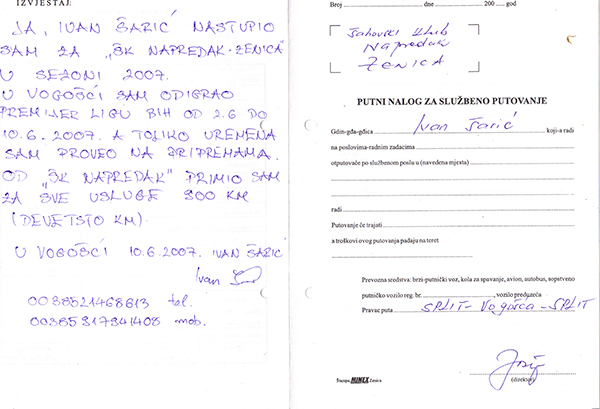 IZVJEŠTAJ:
JA, IVAN ŠARIĆ NASTUPIO
SAM ZA „ŠK NAPREDAK-ZENICA"
U SEZONI 2007.
U VOGOŠĆI SAM ODIGRAO
PREMIJER LIGU BIH OD 2.6 DO
10.6.2007. A TOLIKO VREMENA
SAM PROVEO NA PRIPREMAMA.
OD „ŠK NAPREDAK" PRIMIO SAM
ZA SVE USLUGE 900 KM
(DEVETSTO KM).
U VOGOŠĆI 10.6.2007. IVAN ŠARIĆ
Ivan
0038521468613 tel.
00385917941408 mob.
Broj dne 200 god
Šahovski klub
Napredak
ZENICA
PUTNI NALOG ZA SLUŽBENO PUTOVANJE
Gdin-gđa-gđica Ivan Šarić koji-a radi
na poslovima-radnim zadacima
otputovaće po službenom poslu u (navedena mjesta)
radi
Putovanje će trajati
a troškovi ovog putovanja padaju na teret
Prevozna sredstva: brzi-putnički voz, kola za spavanje, avion, autobus, sopstveno
putničko vozilo reg. br. , vozilo preduzeća
Pravac puta SPLIT - Vogošća - SPLIT
Štampa MINEX Zenica
(direktor)